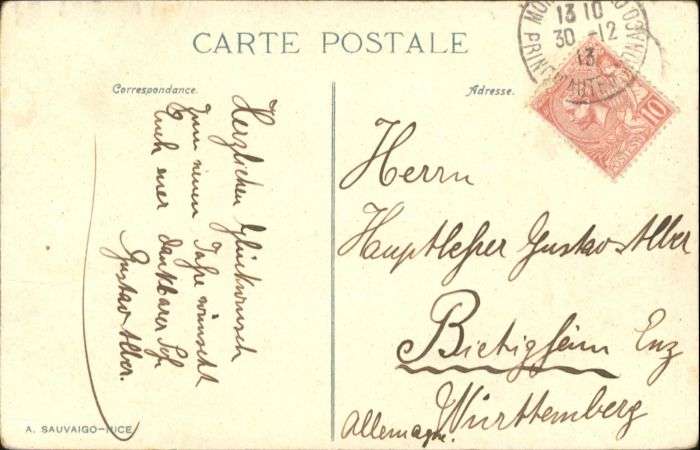 CARTE POSTALE
Correspondance.
Adresse.
13 10
30-12
13
10
Herzlichen Glückwunsch
zum neuen Jahre wünscht
Euch euer dankbarer Sohn
Gustav Alber.
Herrn
Hauptlehrer Gustav Alber
Bietigheim Enz
Württemberg
Allemagne.
A. SAUVAIGO-NICE